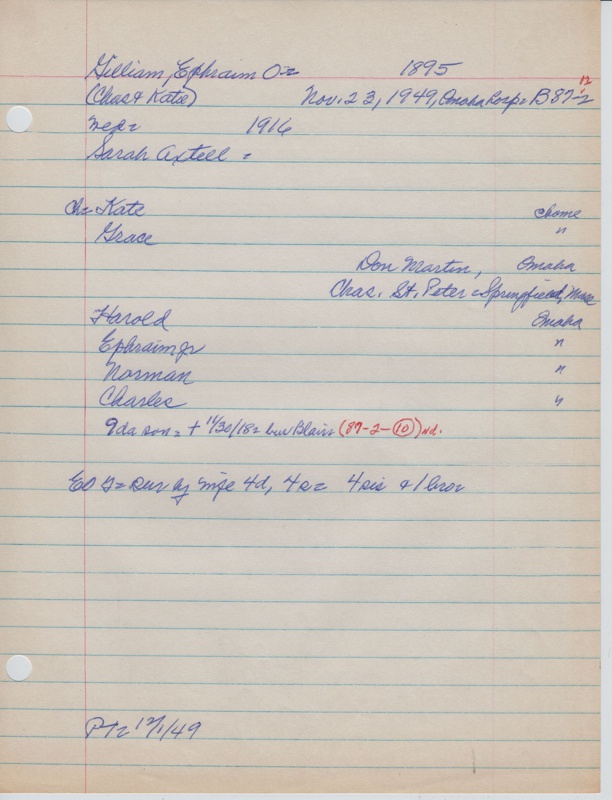 Gilliam, Ephraim O= 1895
(Chas & Katie) Nov. 23, 1949, Omaha hosp= B 87-2
12
med= 1916
Sarah Axtell =
ch= Kate @home
Grace "
Don Martin, Omaha
Chas. St. Peter = Springfield,
Harold Omaha
Ephraim jr "
Norman "
Charles "
9da son= + 11/30/18= bur Blair (87-2-10) Nd.
EO G= sur by wife 4d, 4s= 4 sis & 1 bro=
PT= 12/1/49